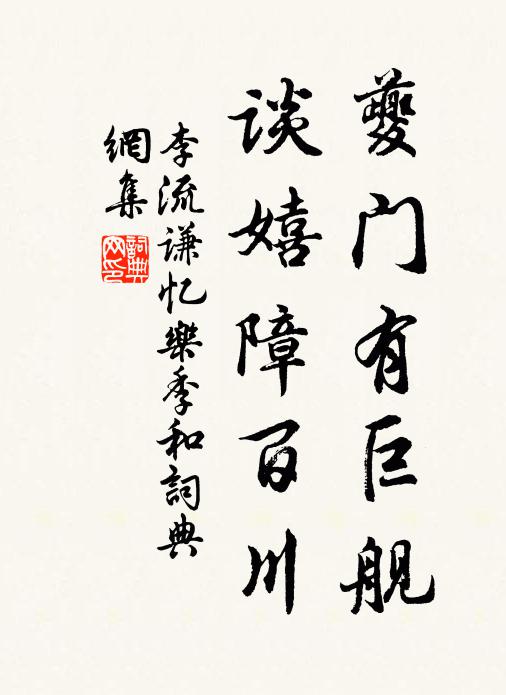 夔门有巨舰
谈嬉障百川
李流谦忆樂季和詞典
網集
詞典
网印